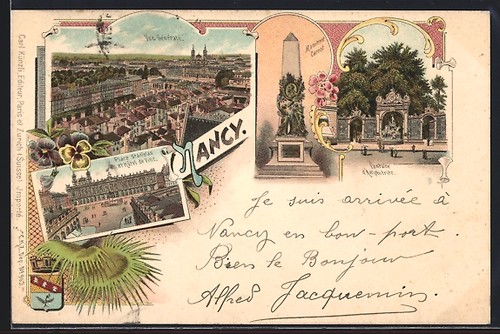 Vue Générale.
Monument Carnot
NANCY.
Place Stanislas et Hôtel de Ville.
Fontaine d'Amphitrite.
Je suis arrivée à
Nancy en bon-port.
Bien le Bonjour
Alfred Jacquemin.
Carl Künzli, Editeur, Paris et Zurich (Suisse) Importé